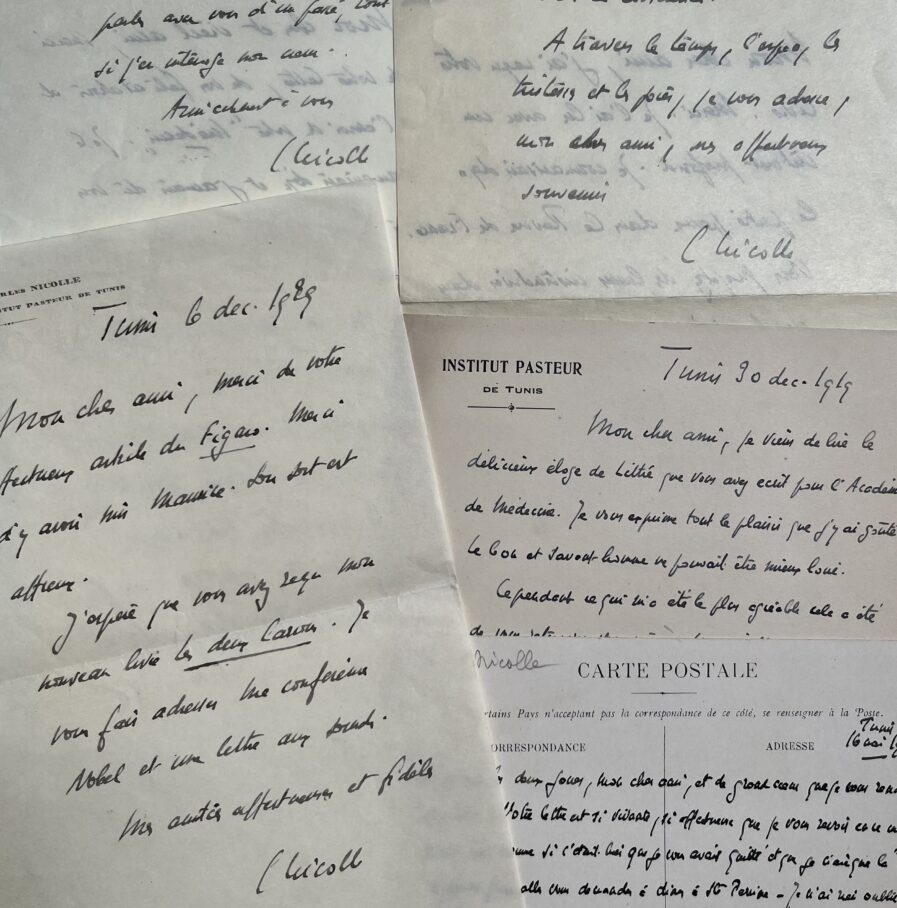 parler avec vous d'un foré, tout
si j'en interroge mon cœur.
Amicalement à vous
C Nicolle
A travers le temps, l'espace, les
tristesses et les joies, je vous adresse,
mon cher ami, mes affectueux
souvenirs
C Nicolle
RLES NICOLLE
TUT PASTEUR DE TUNIS
Tunis 6 dec. 1929
Mon cher ami, merci de votre
affectueux article du Figaro. Merci
d'y avoir mis Maurice. Son sort est
affreux.
J'espère que vous avez reçu mon
nouveau livre les deux Larrons. Je
vous fais adresser ma conférence
Nobel et une lettre aux sourds.
Mes amitiés affectueuses et fidèles
C Nicolle
INSTITUT PASTEUR
DE TUNIS
Tunis 30 dec. 1919
Mon cher ami, je viens de lire le
délicieux éloge de Littré que vous avez ecrit pour l'Académ
de Médecine. Je vous exprime tout le plaisir que j'y ai goûté
Le bon et savant homme ne pouvait être mieux loué.
Cependant ce qui m'a été le plus agréable cela a été
de vous
Nicolle
CARTE POSTALE
rtains Pays n'acceptant pas la correspondance de ce côté, se renseigner à la Poste.
Tunis
16 mai 19
ORRESPONDANCE
ADRESSE
deux jours, mon cher ami, et de grand cœur que je vous
Votre lettre est si vivante, si affectueuse que je vous revois
si c'était hier que je vous avais quitté et que je
vous demander à dîner à Ste Perrine - Je n'ai rien oublié